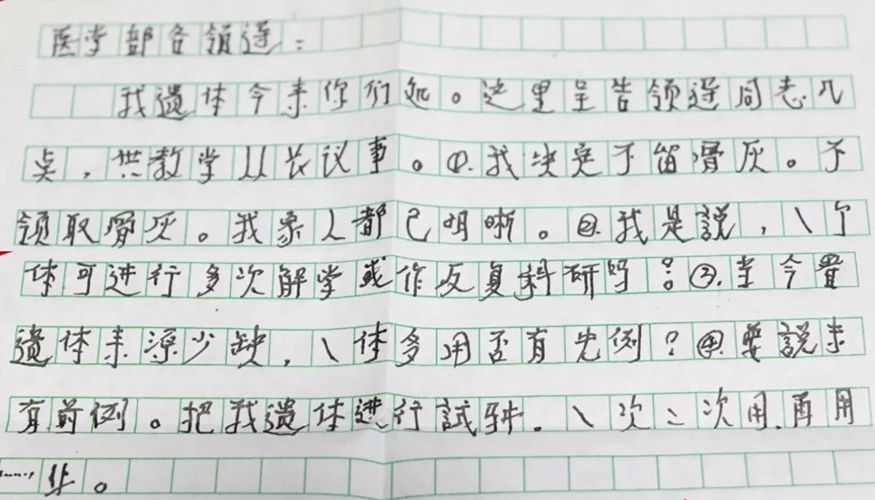 医学部各领导:
我遗体今来你们处。这里呈告领导同志几
点,供教学从长议事。①.我决定不留骨灰。不
领取骨灰。我家人都已明晰。②.我是説,一个
体可进行多次解学或作反复科研吗?③.当今置
遗体来源少缺,一体多用否有先例?④.要説未
有前例。把我遗体进行試驗.一次二次用.再用
……止。